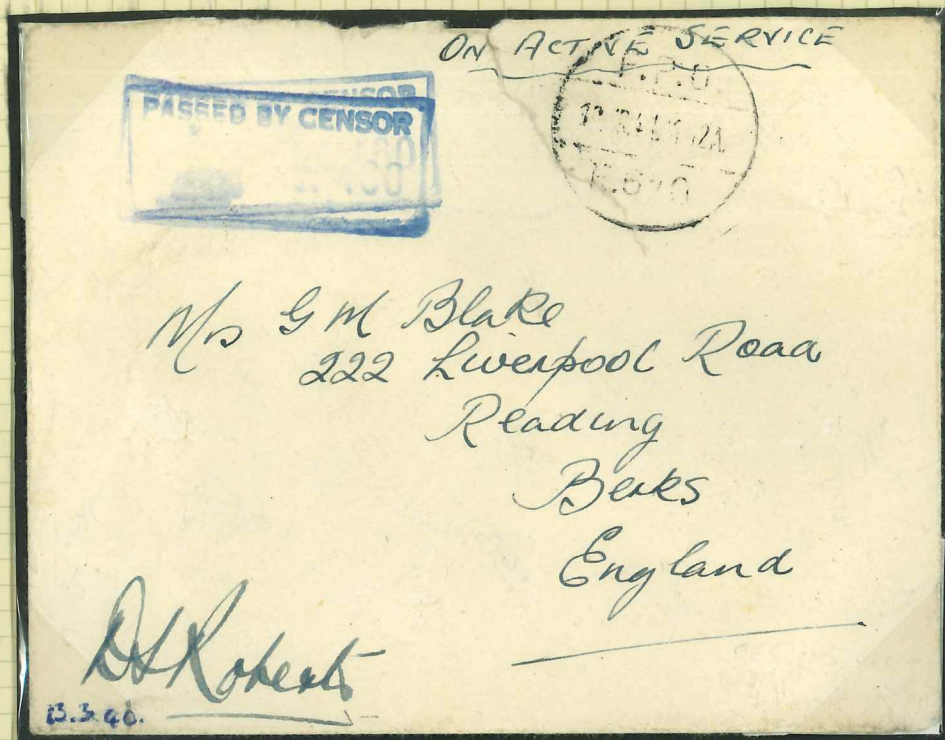 ON ACTIVE SERVICE
PASSED BY CENSOR
F.P.O.
Mrs G M Blake
222 Liverpool Road
Reading
Berks
England
D L Roberts
13.3.40.